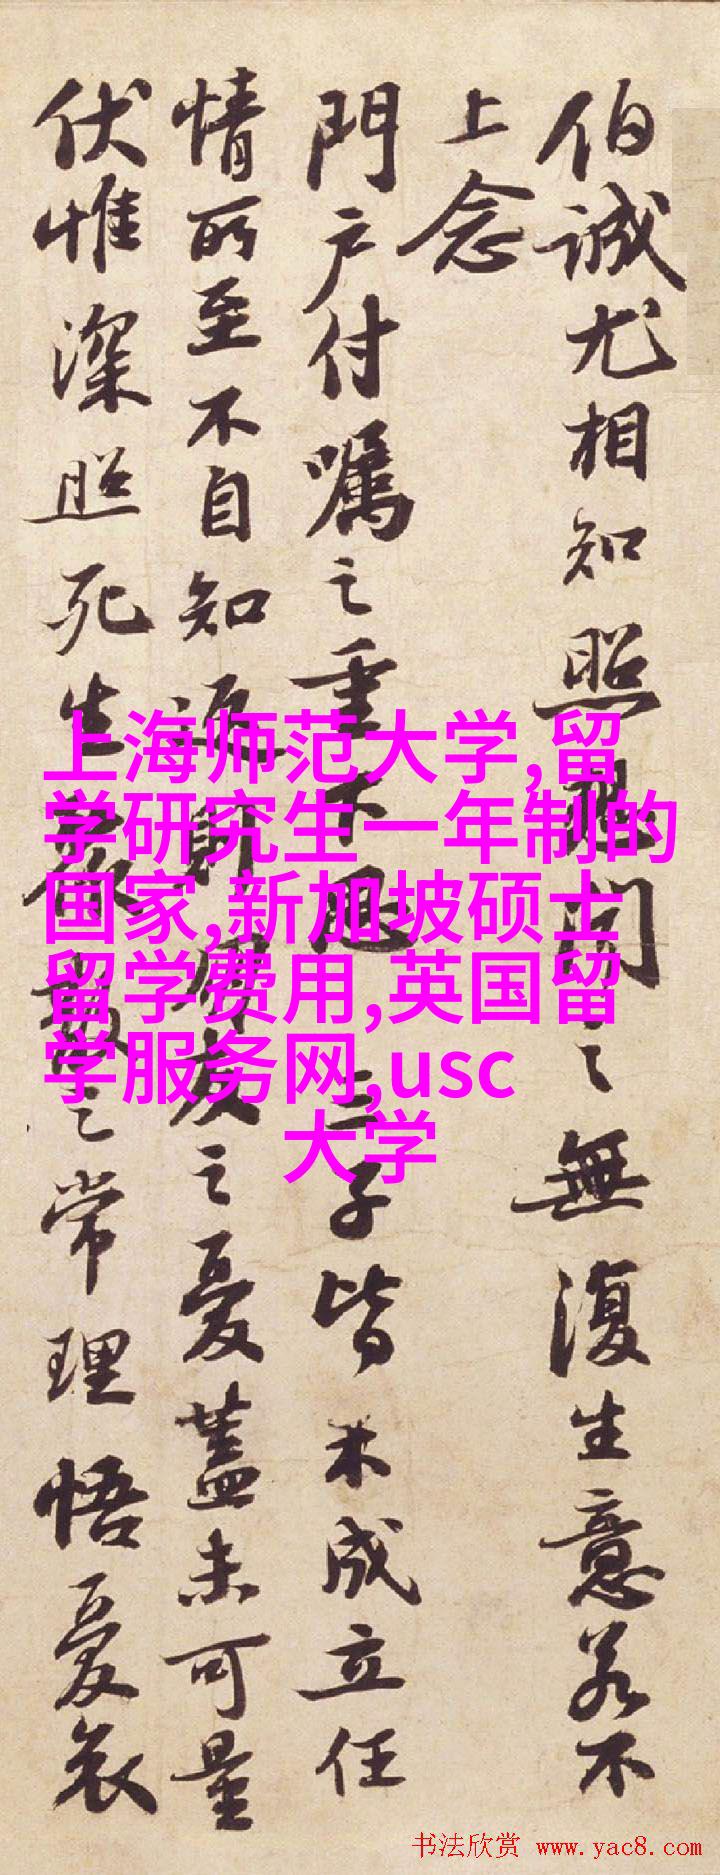 伯誠尤相知照想聞之無復生意若不
上念
門户付囑之重下思三子皆未成立任
情所至不自知返則朋友之憂蓋未可量
伏惟深照死生聚散之常理悟憂哀
上海师范大学,留
学研究生一年制的
国家,新加坡硕士
留学费用,英国留
学服务网,usc
大学
书法欣赏 www.yac8.com